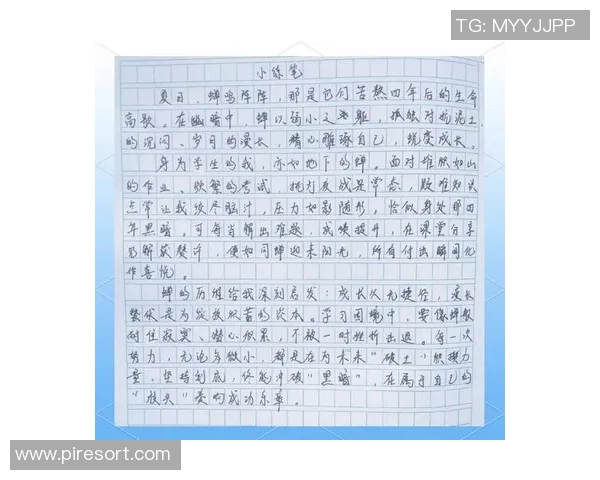 TG: MYYJJPP
小练笔
夏日，蝉鸣阵阵，那是它们苦熬四年后的生命
高歌。在幽暗中，蝉以弱小之躯，孤独对抗泥土
的沉闷、岁月的漫长，精心雕琢自己，蜕变成长。
身为学生的我，亦如地下的蝉。面对堆积如山
的作业、频繁的考试，挑灯夜战是常态，疑难知识
点常让我绞尽脑汁，压力如影随形，恰似身处那四
年黑暗。可每当解出难题，成绩提升，在课堂分享
见解获赞许，便如同蝉迎来阳光，所有付出瞬间化
作喜悦。
蝉的历程给我深刻启发：成长从无捷径，漫长
蛰伏是为发跃积蓄的资本。学习困境中，要像蝉般
耐住寂寞、潜心积累，不被一时挫折击退。每一次
努力，无论多微小，都是在为未来“破土”积攒力
量，坚持到底，终能冲破“黑暗”，在属于自己的
“枝头”奏响成功乐章。
www.piresort.com